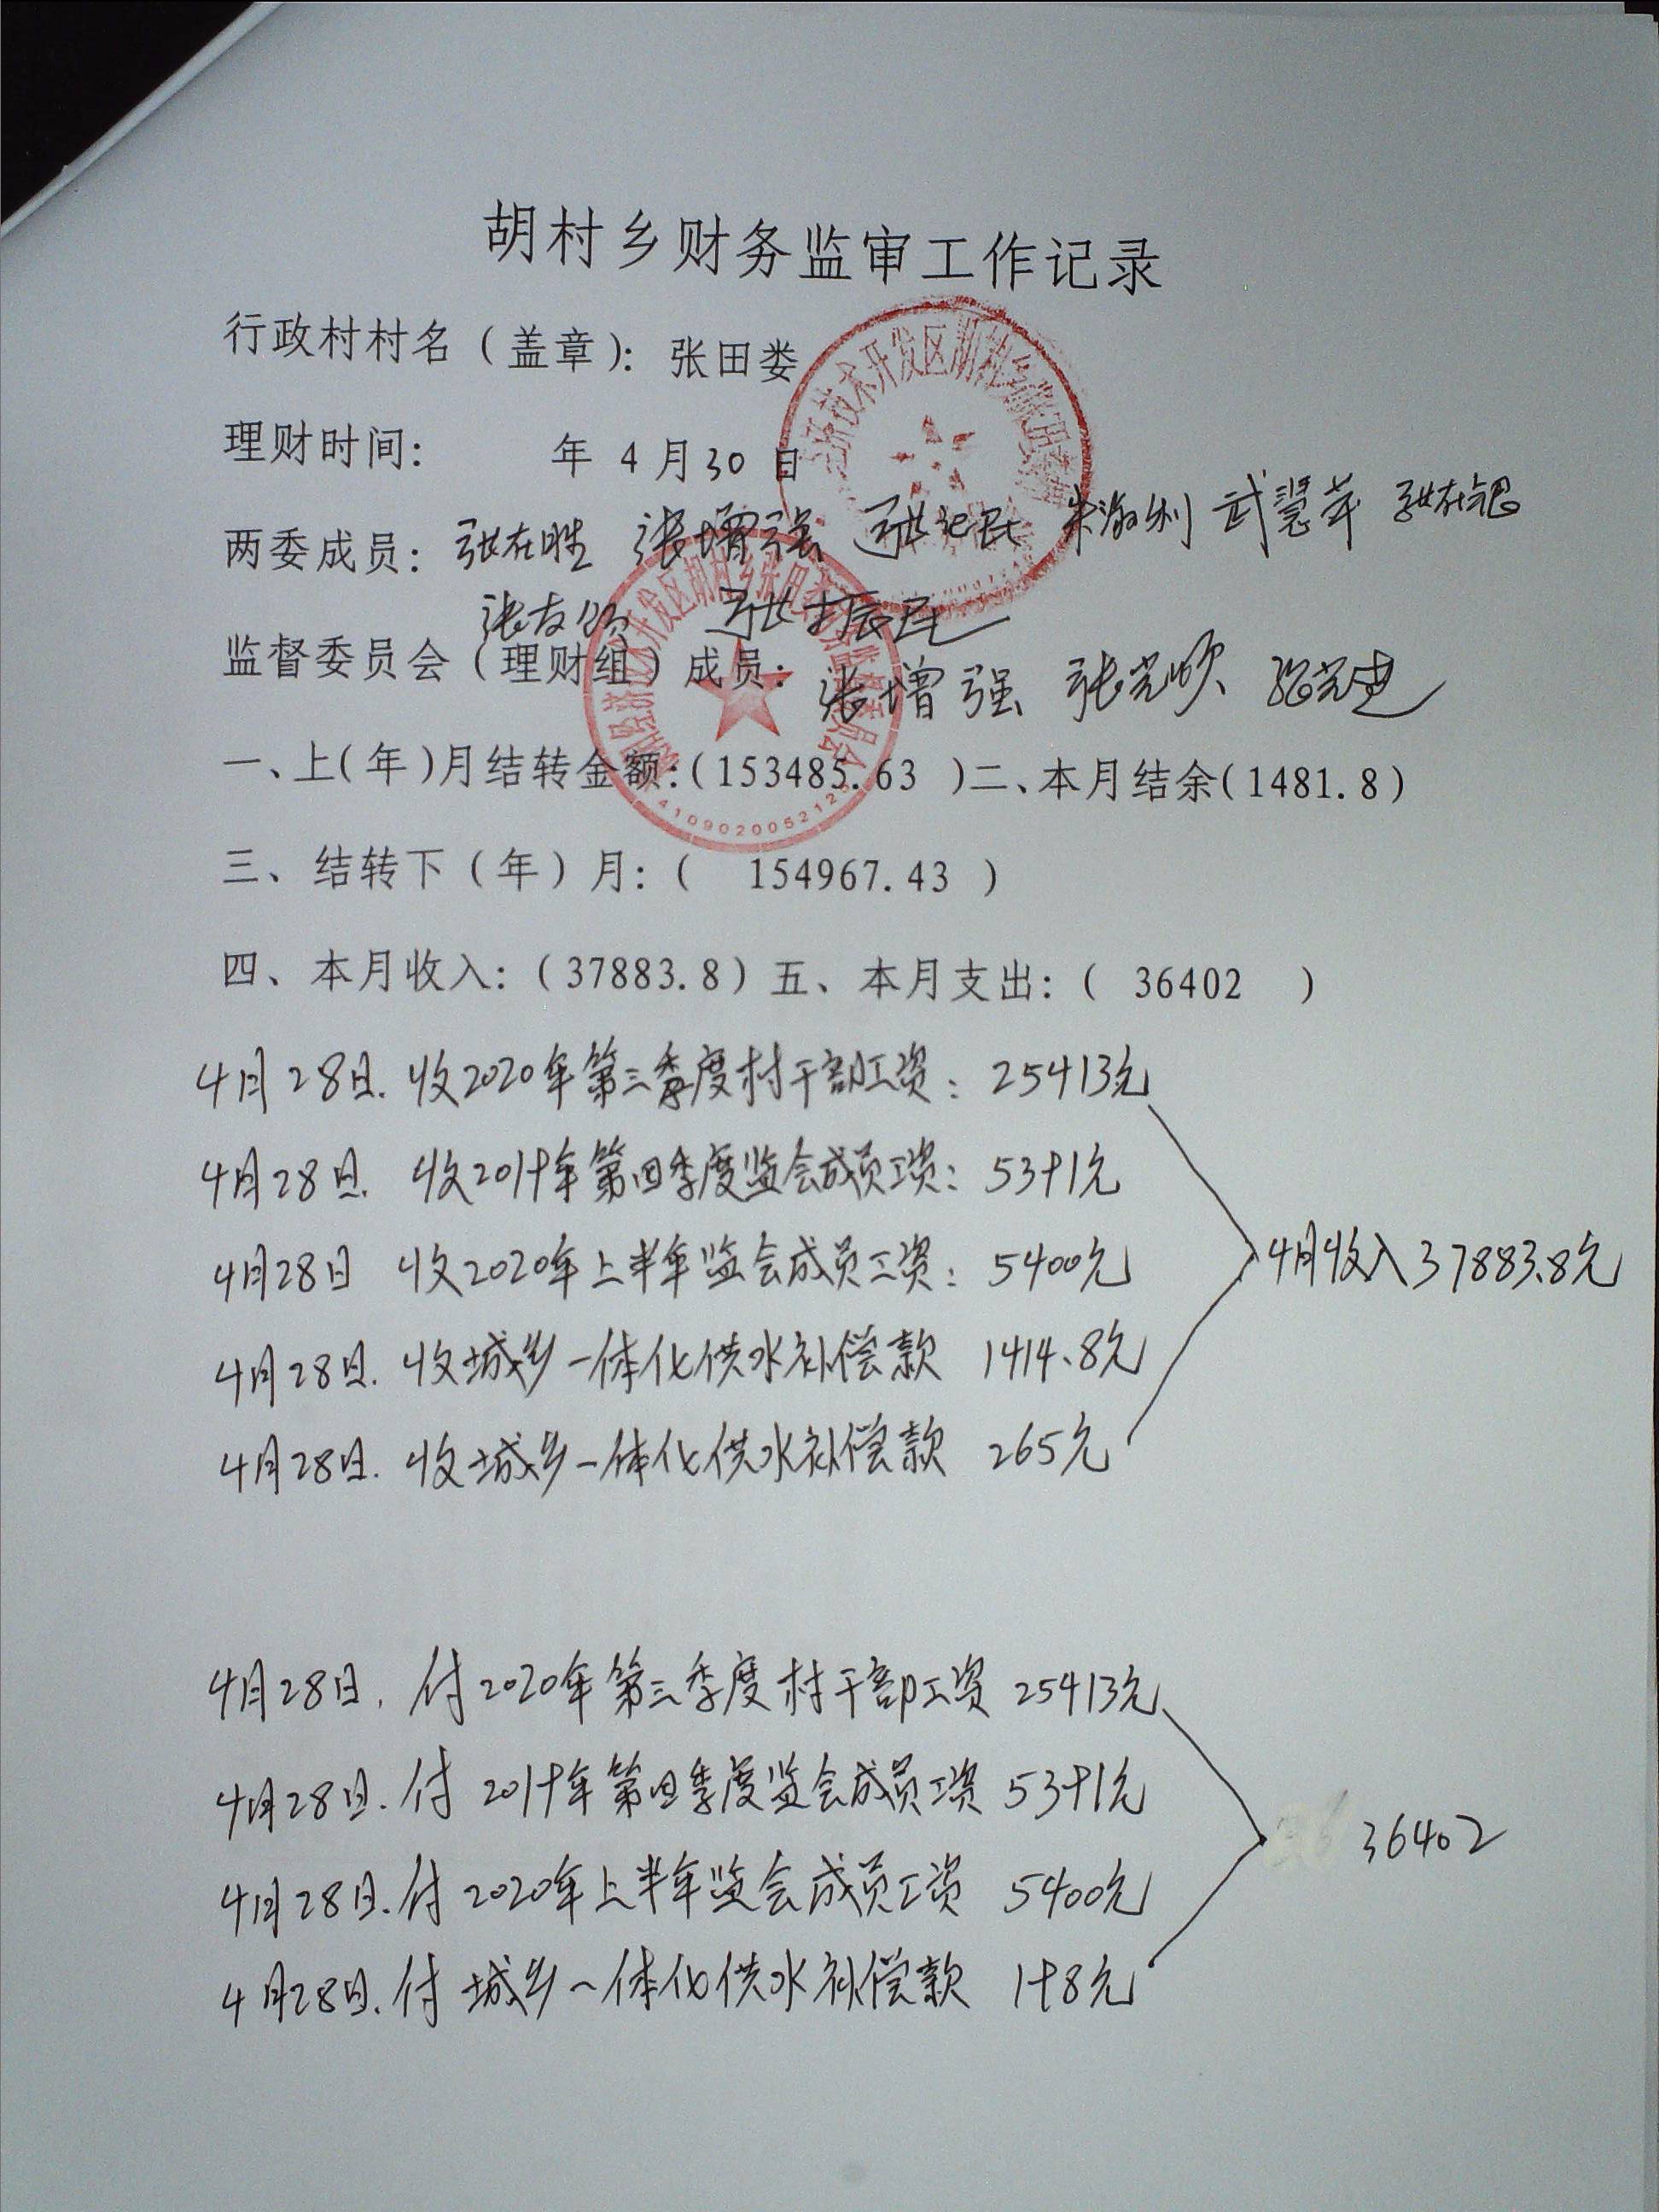 胡村乡财务监审工作记录
行政村村名（盖章）：张田娄
理财时间： 年 4 月 30 日
两委成员：张在胜 张增强 张记民 武慧苹
张振民
监督委员会（理财组）成员：张增强
一、上(年)月结转金额：(153485.63 )二、本月结余(1481.8)
4109020052123
三、结转下（年）月：( 154967.43 )
四、本月收入：(37883.8) 五、本月支出：( 36402 )
4月28日. 收2020年第三季度村干部工资：25413元
4月28日. 收2019年第四季度监会成员工资：5391元
4月28日 收2020年上半年监会成员工资：5400元
4月收入37883.8元
4月28日. 收城乡一体化供水补偿款 1414.8元
4月28日. 收城乡一体化供水补偿款 265元
4月28日. 付2020年第三季度村干部工资 25413元
4月28日. 付 2019年第四季度监会成员工资 5391元
36402
4月28日. 付2020年上半年监会成员工资 5400元
4月28日. 付 城乡一体化供水补偿款 198元